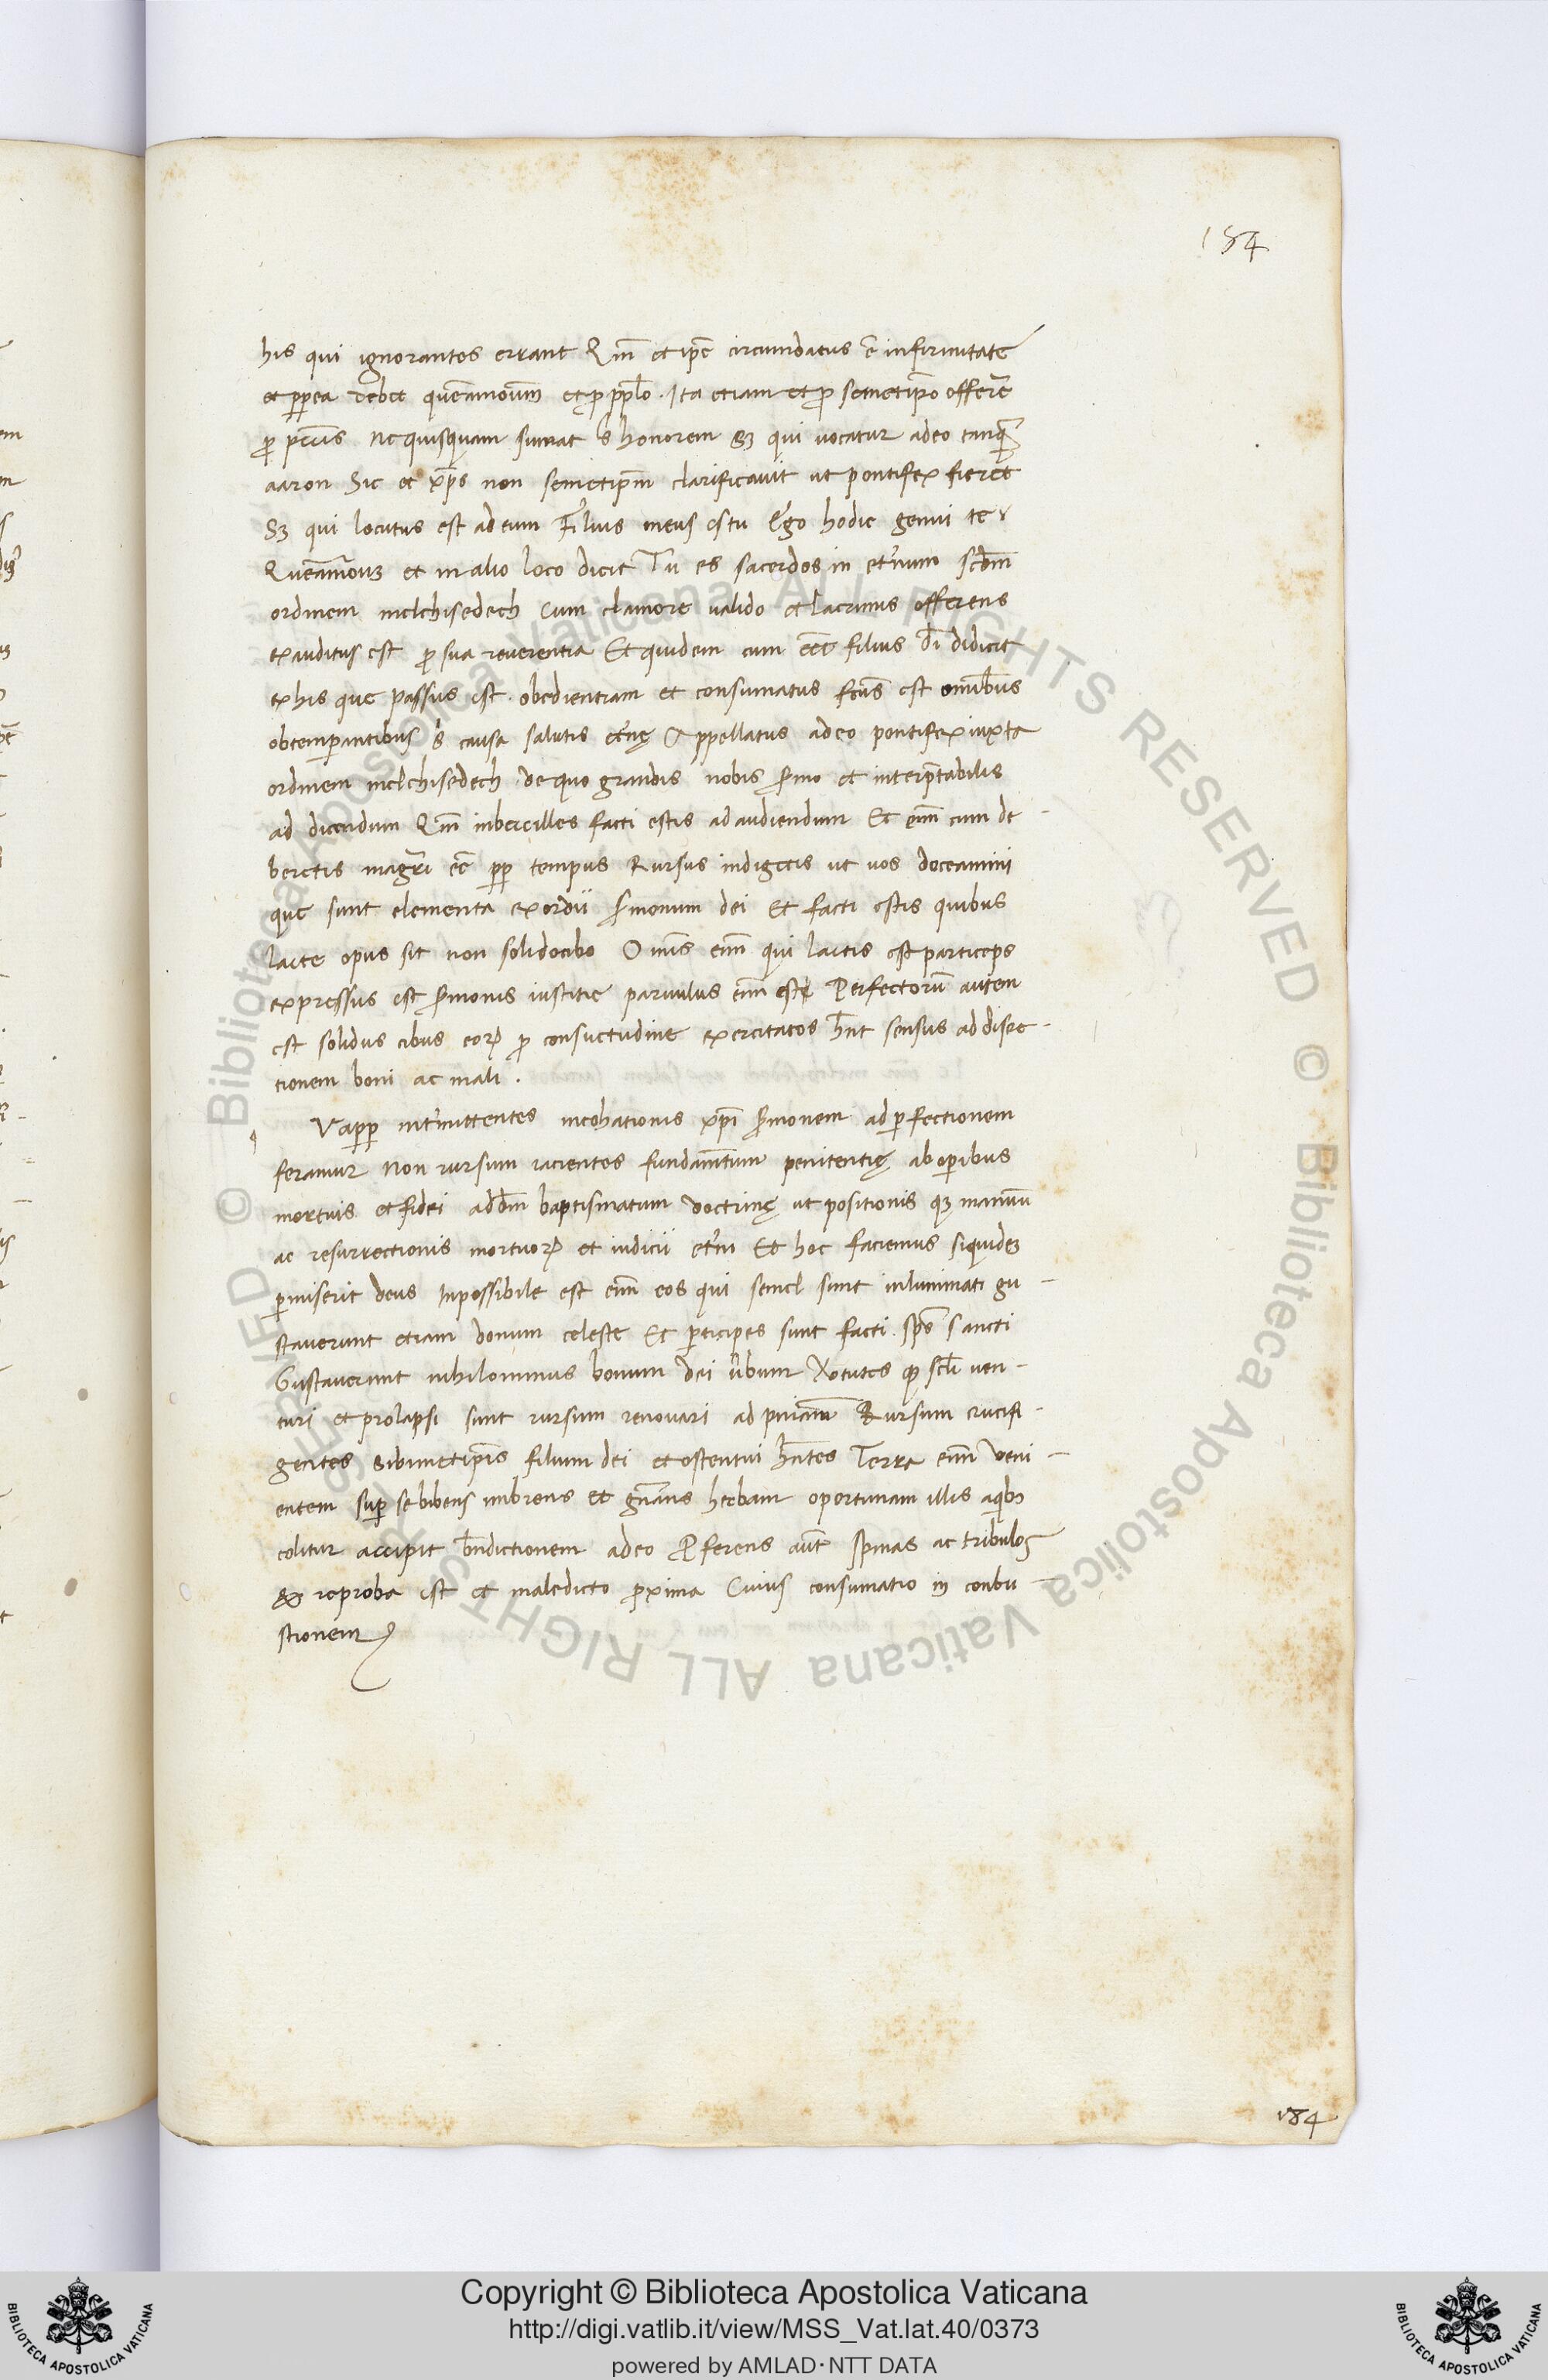 184
his qui ignorantes errant Qm̅ et ip̅e circumdatus ē infirmitate
et ꝓpea debet quēamoum̅ et ꝓ pp̅lo. Ita etiam et ꝓ semetip̅o offerē
ꝓ pcc̅is Ne quisquam sumat s̅ honorem Sꝫ qui uocatur adeo tanq̅
aaron Sic et xp̅s non semetip̅m clarificauit ut pontifex fieret
Sꝫ qui locutus est ad eum Filius meus es tu Ego hodie genui te
Quēamouꝫ et in alio loco dicit Tu es sacerdos in et̅num sc̅dm
ordinem melchisedech Cum clamore ualido et lacrimis offerens
exauditus est ꝓ sua reuerentia Et quidem cum eēt filius dī didicit
ex his que passus est. obedientiam et consumatus fc̅us est omīb̅us
obtemꝑantibus s̅ causa salutis et̅nę Appellatus adeo pontifex iuxta
ordinem melchisedech de quo grandis nobis s̅mo et interp̅tabilis
ad dicendum Qm̅ inbecilles facti estis ad audiendum Et enī cum de-
beretis magr̅i eē ꝓp tempus Rursus indigetis ut uos doceamini
que sunt elementa exordii s̅monum dei Et facti estis quibus
lacte opus sit non solido cibo Om̅is enī qui lactis est particeps
expressus est s̅monis iustitie paruulus enī est Perfectorū autem
est solidus cibus eoꝝ ꝓ consuetudine exercitatos hn̅t sensus ad discre-
tionem boni ac mali.
Vaꝓp int̅mittentes incohationis xp̅i s̅monem ad ꝑfectionem
feramur Non rursum iacientes fundam̅tum penitentię ab oꝑibus
mortuis et fidei ad dm̅ baptismatum doctrinę ut positionis qꝫ manuū
ac resurrectionis mortuoꝝ et iudicii et̅ni Et hoc faciemus siquideꝫ
ꝑmiserit deus Inpossibile est enī eos qui semel sunt inluminati gu-
stauerunt etiam donum celeste Et ꝑticipes sunt facti sp̅s Sancti
Gustauerunt nihilominus bonum dei u̅bum Vo̅tutes qꝫ sc̅li uen-
turi et prolapsi sunt rursum renouari ad pnīam Rursum crucifi-
gentes sibimetip̅is filium dei et ostentui hn̅tes Terra enī veni-
entem suꝑ se bibens imbrens et gn̅ans herbam oportunam illis aqb
colitur accipit bn̅dictionem adeo Ꝓferens aut̅ spinas ac tribulos
& reproba est et maledicto ꝓxima Cuius consumatio in conbu-
stionem
184
Copyright © Biblioteca Apostolica Vaticana
http://digi.vatlib.it/view/MSS_Vat.lat.40/0373
powered by AMLAD·NTT DATA
BIBLIOTECA APOSTOLICA VATICANA
BIBLIOTECA APOSTOLICA VATICANA